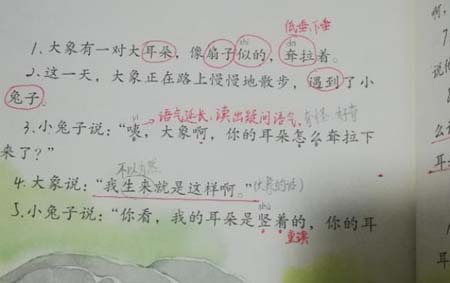 低垂、下垂
1.大象有一对大耳朵，像扇子似的，耷拉着。
2.这一天，大象正在路上慢慢地散步，遇到了小
兔子。
语气延长，读出疑问语气，奇怪、好奇
3.小兔子说：“咦，大象啊，你的耳朵怎么耷拉下
来了？”
不以为然
4.大象说：“我生来就是这样啊。”
5.小兔子说：“你看，我的耳朵是竖着的，你的耳
重读